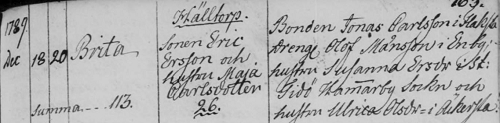 1789
Källtorp.
Dec 18 20 Brita
Sonen Eric
Ersson och
hustru Maja
Carlsdotter
26.
Summa --- 113.
Bonden Jonas Carlsson i
Dreng Olof Månsson i Enby,
hustru Susanna Ersdr i St:
Hamarby Socken och
hustru Ulrica Olsdr - i Åkerpla